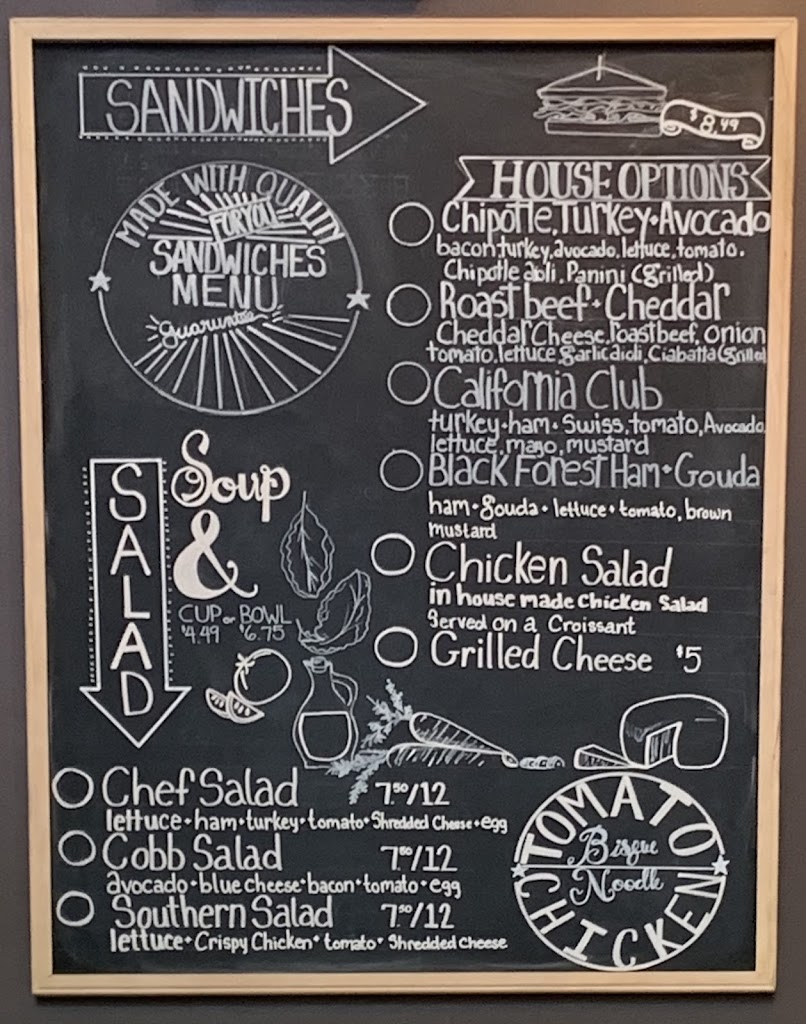 SANDWICHES
$8.49
MADE WITH QUALITY
FOR YOU
SANDWICHES
MENU
guarantee
HOUSE OPTIONS
Chipotle, Turkey • Avocado
bacon, turkey, avocado, lettuce, tomato.
Chipotle aoli, Panini (grilled)
Roast beef • Cheddar
Cheddar Cheese, roast beef, onion
tomato, lettuce garlic aioli, Ciabatta (grilled)
California Club
turkey • ham • Swiss, tomato, Avocado,
lettuce, mayo, mustard
Black Forest Ham • Gouda
ham • gouda • lettuce • tomato, brown
mustard
Chicken Salad
in house made Chicken Salad
Served on a Croissant
Grilled Cheese $5
SALAD
Soup
&
CUP or BOWL
$4.49 $6.75
Chef Salad 7.50/12
lettuce • ham • turkey • tomato • Shredded Cheese • egg
Cobb Salad 7.50/12
avocado • blue cheese • bacon • tomato • egg
Southern Salad 7.50/12
lettuce • Crispy Chicken • tomato • Shredded Cheese
TOMATO
Bisque
Noodle
CHICKEN